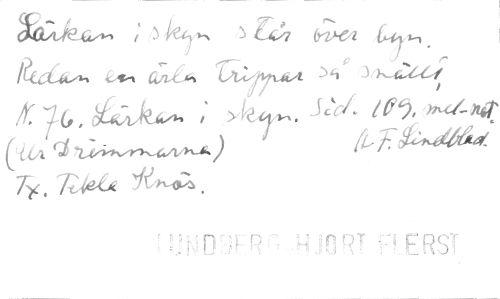 Lärkan i skyn står över byn.
Redan en ärla trippar så snällt,
N. 76. Lärkan i skyn. Sid. 109. med-not.
(Ur Drömmarna) A. F. Lindblad.
Tx. Tekla Knös.
LUNDBERG-HJORT FLERST